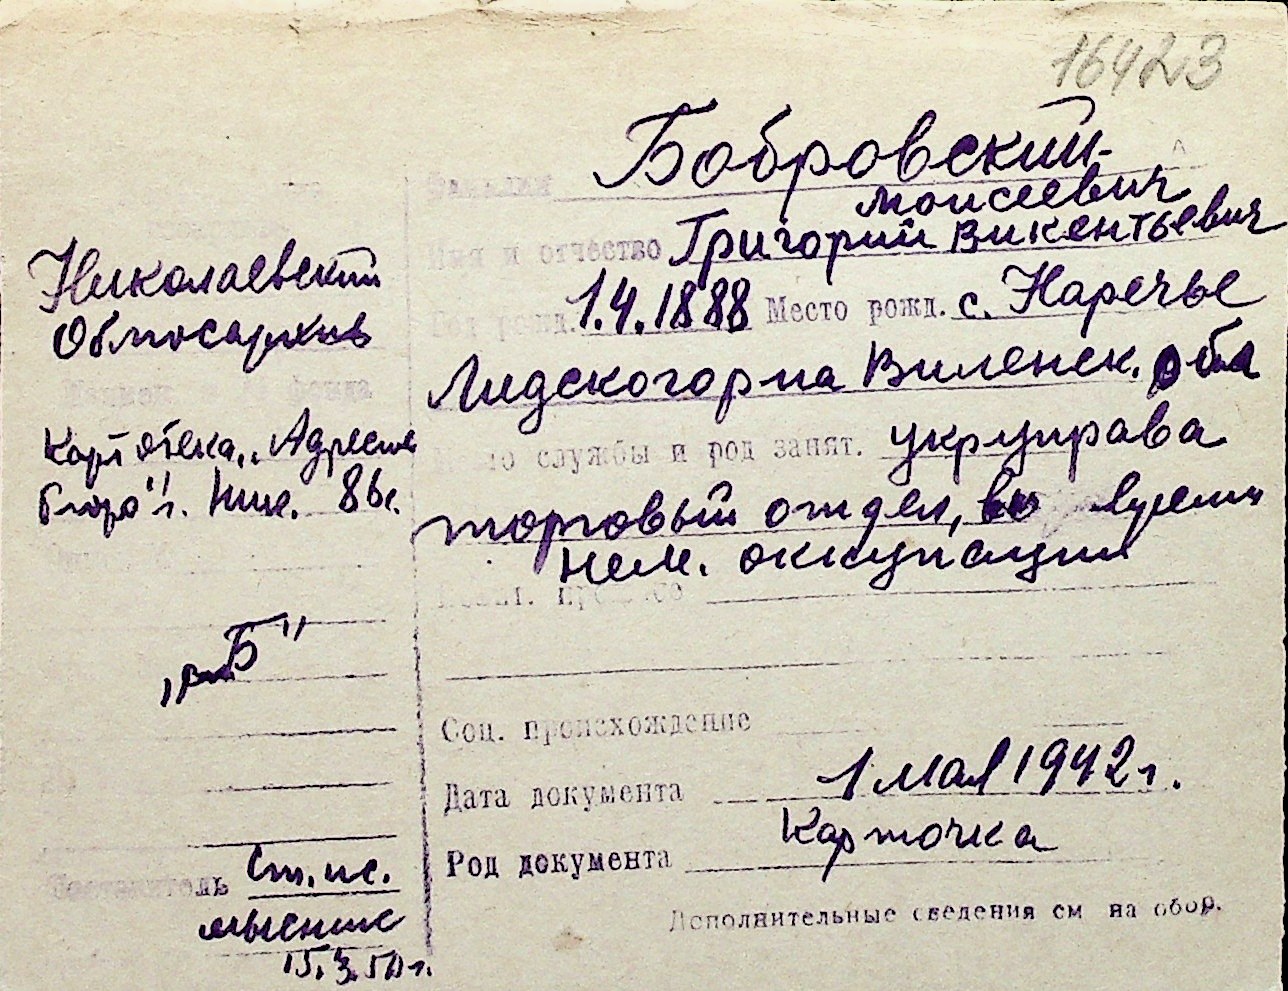 16423
Фамилия Бобровский
Моисеевич
Имя и отчество Григорий Викентьевич
Год рожд. 1.4.1888 Место рожд. с. Наречье
Лидского р-на Виленск. обл
службы и род занят. укруправа
торговый отдел, во время
нем. оккупации
Соц. происхождение
Дата документа 1 мая 1942 г.
Род документа Карточка
Дополнительные сведения см на обор.
Николаевский
Облгосархив
фонда
Картотека „Адресное
бюро" г. Ник.
„Б"
Составитель
15.3.50 г.